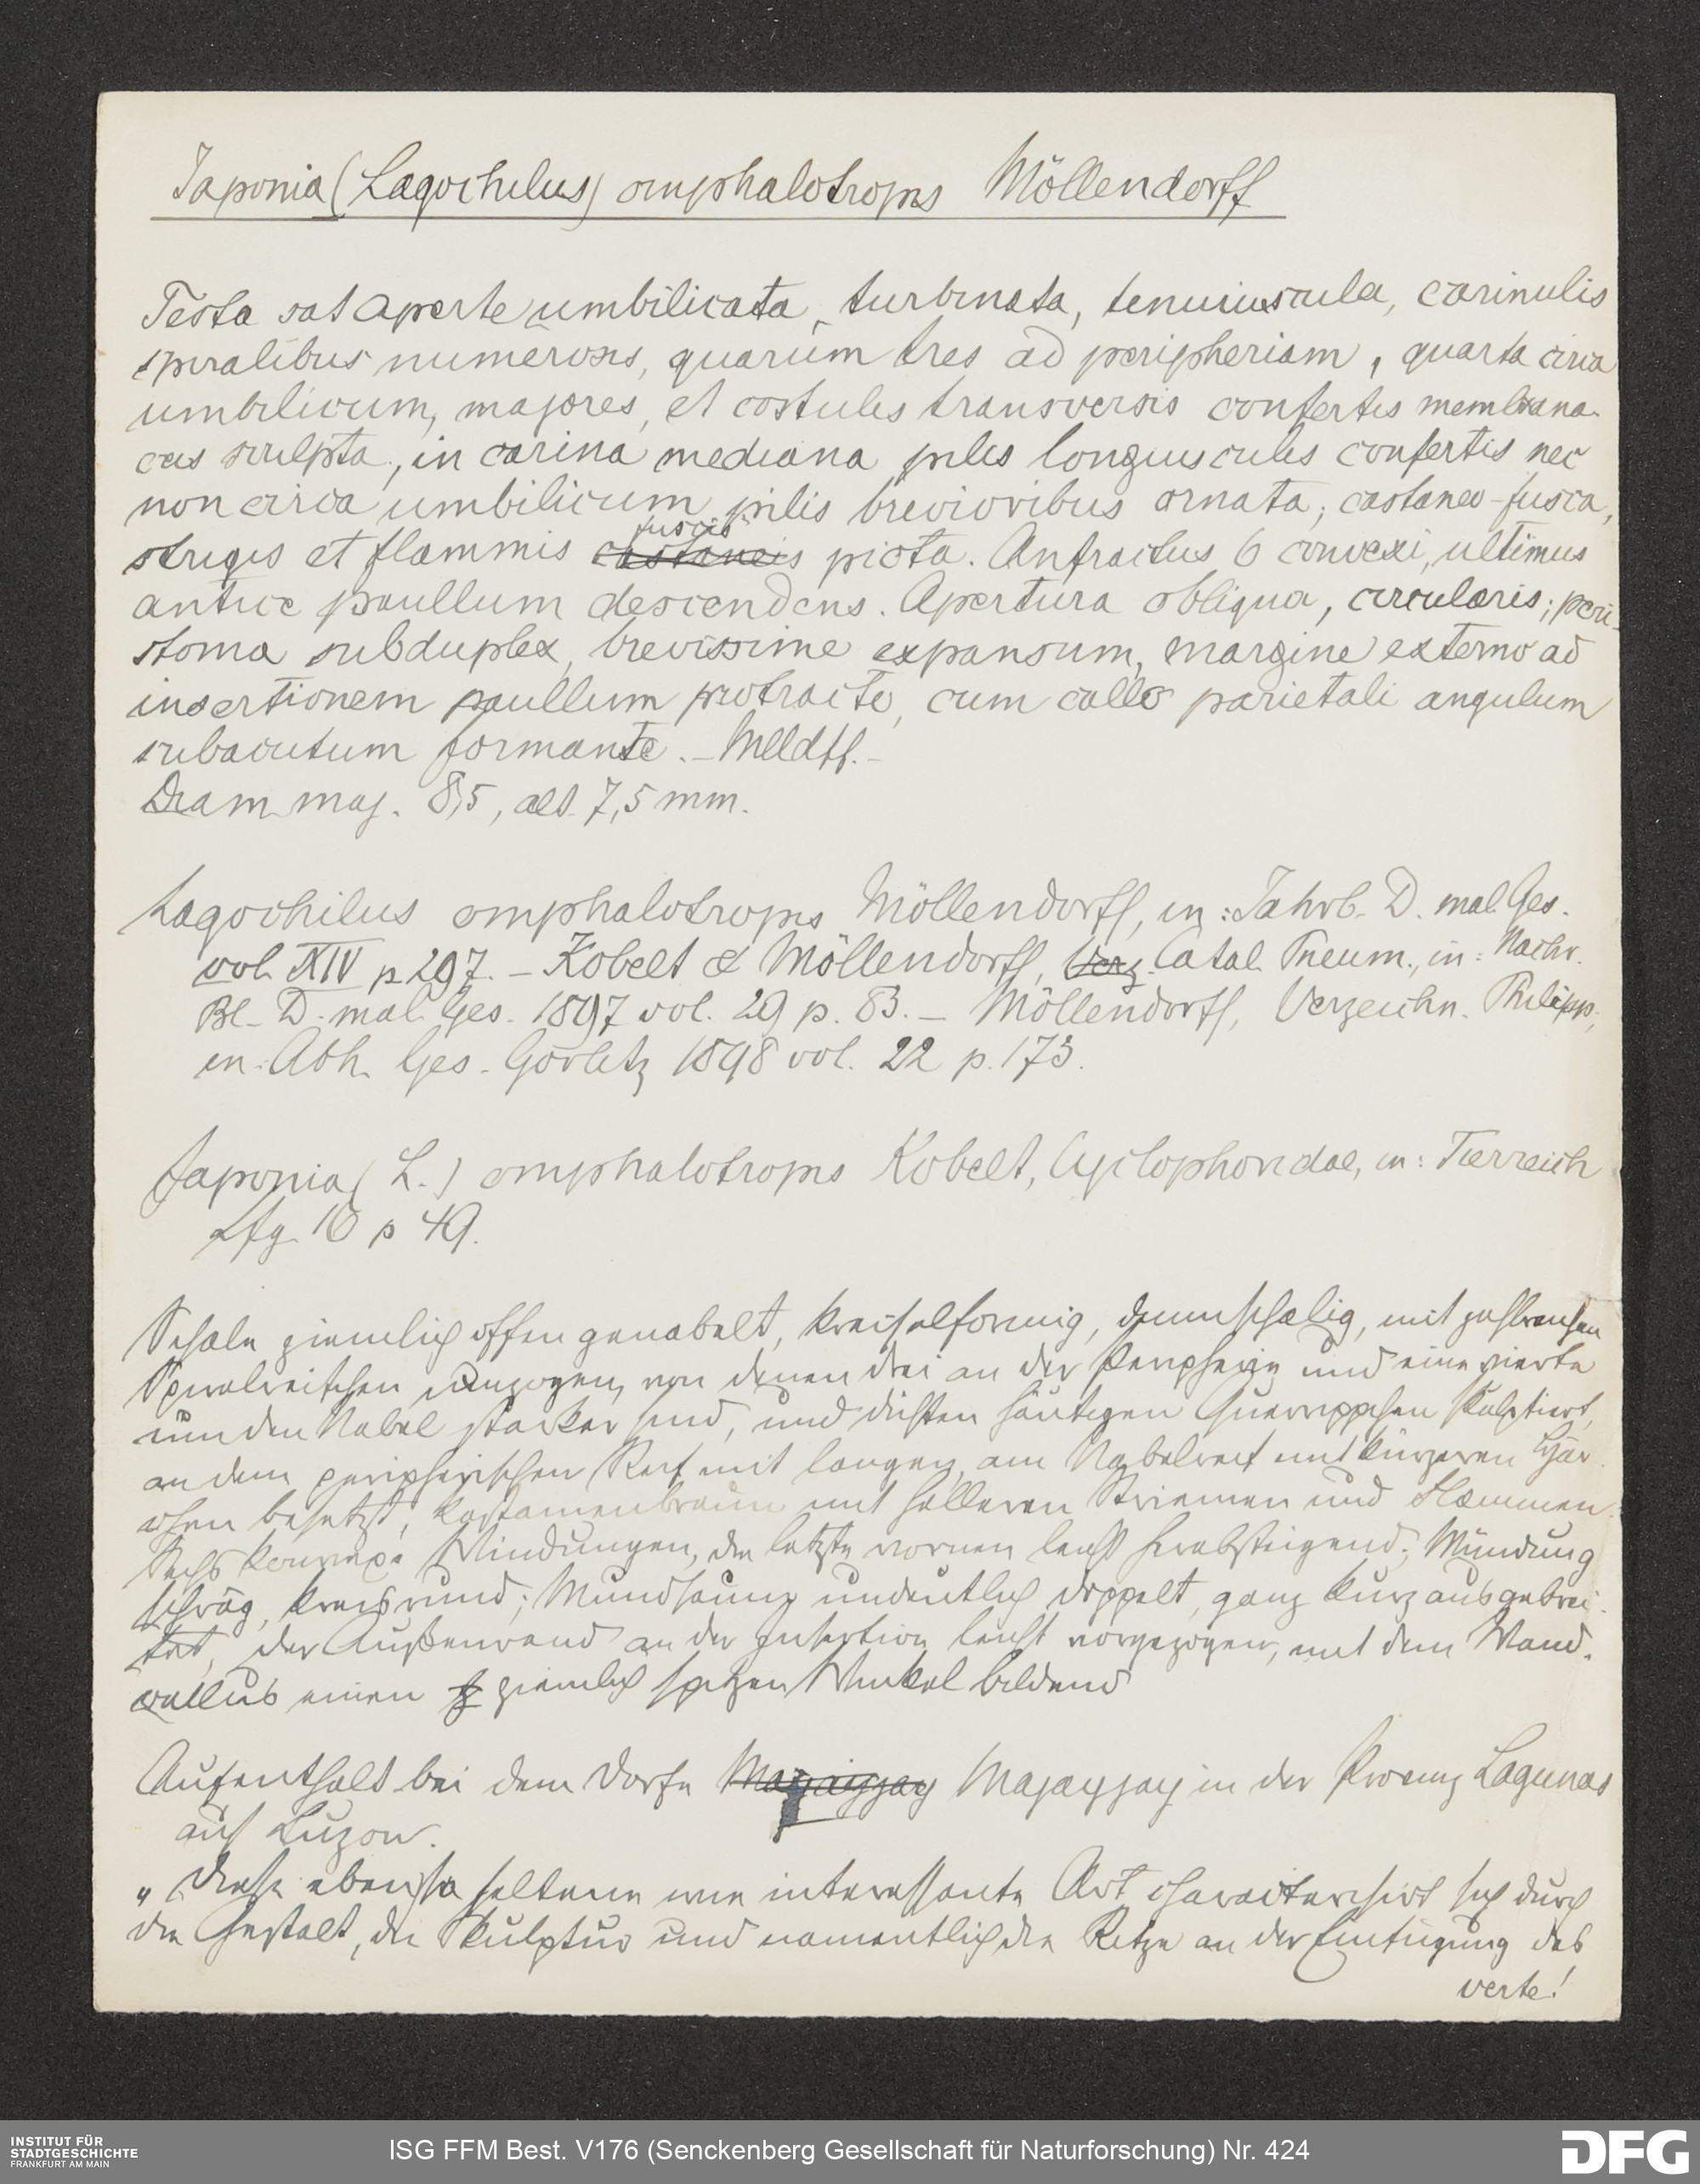 Japonia (Lagochilus) omphalotropis Möllendorff
Testa sat aperte umbilicata, turbinata, tenuiuscula, carinulis
spiralibus numerosis, quarum tres ad peripheriam, quarta circa
umbilicum, majores, et costulis transversis confertis membrana-
ceis sculpta, in carina mediana pilis longiusculis confertis nec
non circa umbilicum pilis brevioribus ornata; castaneo-fusca,
fuscis
strigis et flammis castaneis picta. Anfractus 6 convexi, ultimus
antice paullum descendens. Apertura obliqua, circularis; peri-
stoma subduplex, brevissime expansum, margine externo ad
insertionem paullum protracto, cum callo parietali angulum
subacutum formante. – Mlldff. –
Diam maj. 8,5, alt. 7,5 mm.
Lagochilus omphalotropis Möllendorff, in: Jahrb. D. mal. Ges.
vol. XIV p 297. – Kobelt & Möllendorff, Verz. Catal. Pneum., in: Nachr.
Bl. D. mal. Ges. 1897 vol. 29 p. 83. – Möllendorff, Verzeichn. Philipp.,
in: Abh. Ges. Görlitz 1898 vol. 22 p. 173.
Japonia (L.) omphalotropis Kobelt, Cyclophoridae, in: Tierreich
Lfg. 16 p 49.
Schale ziemlich offen genabelt, kreiselförmig, dünnschalig, mit zahlreichen
Spiralreifchen umzogen, von denen drei an der Peripherie und eine vierte
um den Nabel stärker sind, und dichten häutigen Querrippchen skulptiert,
an dem peripherischen Reif mit langen, am Nabelreif mit kürzeren Här-
chen besetzt, kastanienbraun mit helleren Striemen und Flammen.
Sechs konvexe Windungen, die letzte vornen leicht herabsteigend; Mündung
schräg, kreisrund; Mundsaum undeutlich doppelt, ganz kurz ausgebrei-
tet, der Außenrand an der Insertion leicht vorgezogen, mit dem Wand-
callus einen ziemlich spitzen Winkel bildend
Aufenthalt bei dem Dorfe Majayjay in der Provinz Lagunas
auf Luzon.
„Diese ebenso seltene wie interessante Art charakterisirt sich durch
die Gestalt, die Skulptur und namentlich die Ritze an der Einfügung des
verte!
INSTITUT FÜR
STADTGESCHICHTE
FRANKFURT AM MAIN
ISG FFM Best. V176 (Senckenberg Gesellschaft für Naturforschung) Nr. 424
DFG